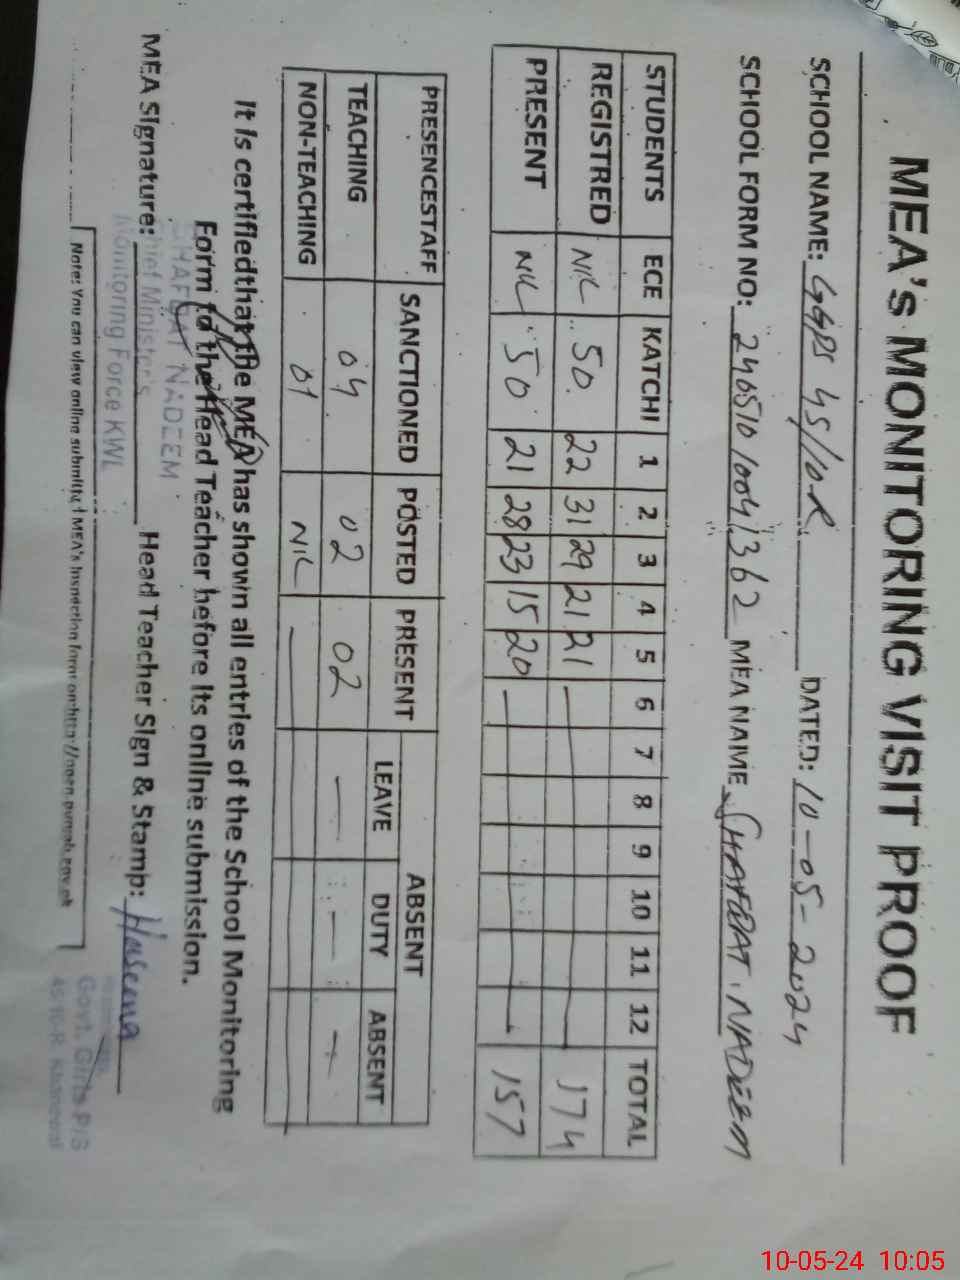 MEA's MONITORING VISIT PROOF
SCHOOL NAME: GGPS 45/10.R DATED: 10-05-2024
SCHOOL FORM NO: 240510 1004 1362 MEA NAME SHAFQAT NADEEM
STUDENTS ECE KATCHI 1 2 3 4 5 6 7 8 9 10 11 12 TOTAL
REGISTRED NIL 50 22 31 29 21 21 174
PRESENT NIL 50 21 28 23 15 20 157
PRESENCESTAFF SANCTIONED POSTED PRESENT ABSENT
LEAVE DUTY ABSENT
TEACHING 04 02 02 — — —
NON-TEACHING 01 NIL —
It is certifiedthat the MEA has shown all entries of the School Monitoring
Form to the Head Teacher before its online submission.
SHAFQAT NADEEM
Chief Minister's
Monitoring Force KWL
MEA Signature: Head Teacher Sign & Stamp: Haseena
Govt. Girls P/S
45/10-R Khanewal
Note: You can view online submitted MEA's Inspection form on http://open.punjab.gov.pk
10-05-24 10:05